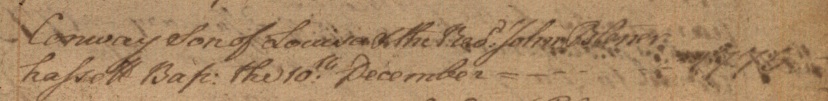 Conway Son of Louisa & the Revd. John Blener
hassett Bap: the 10th. December = - - -